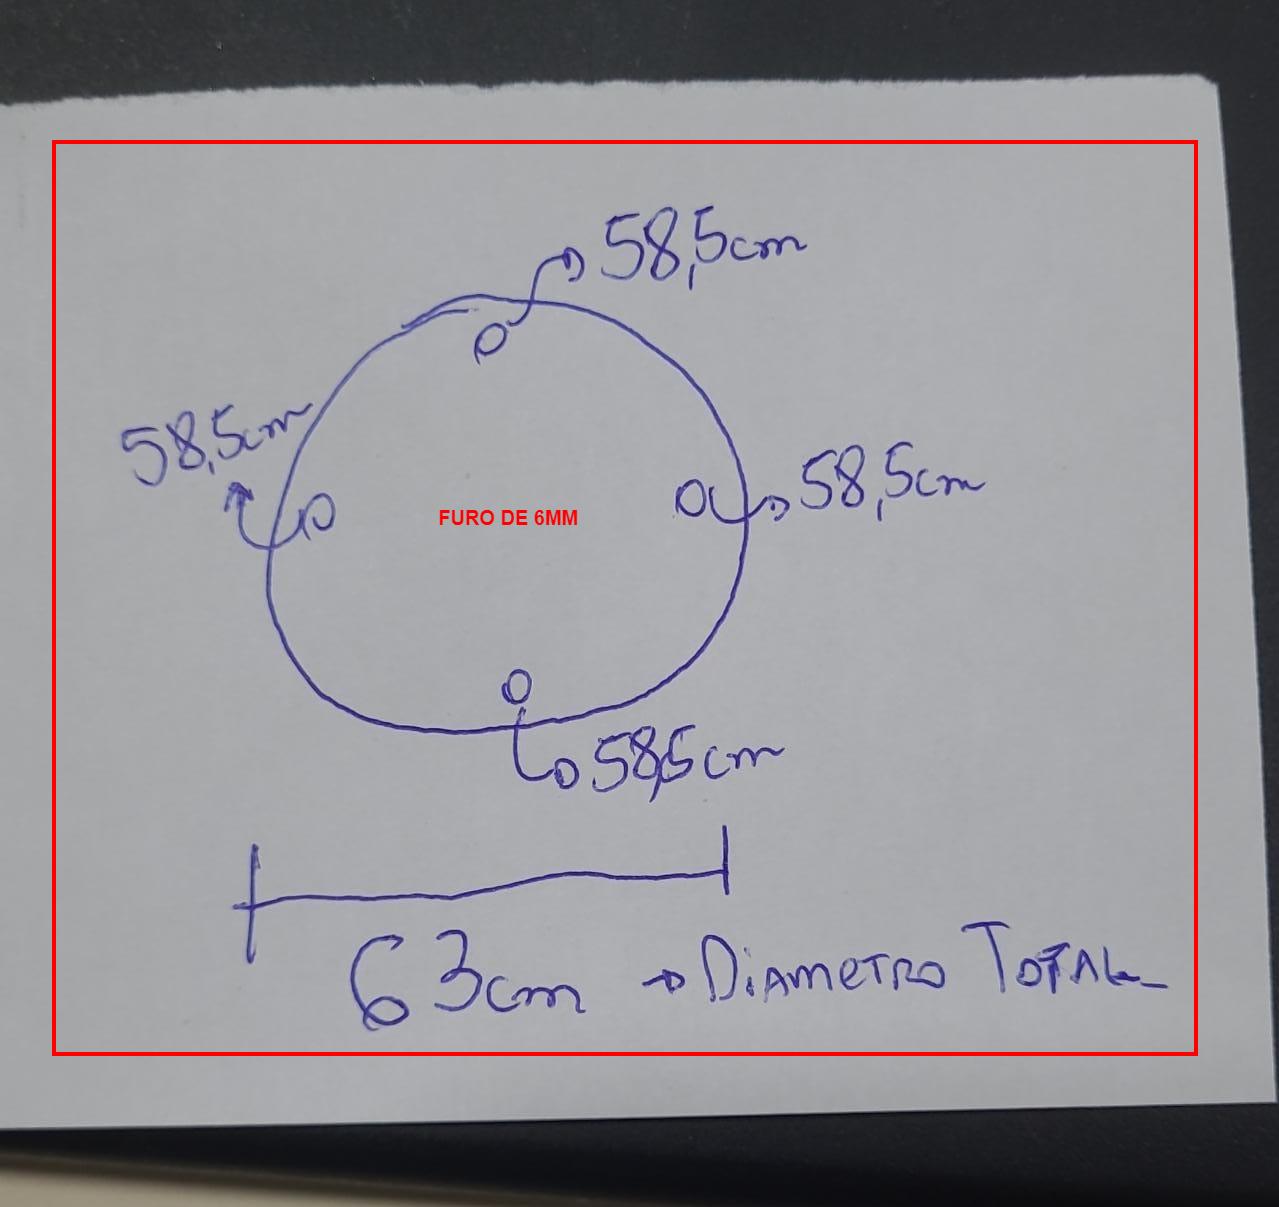 58,5cm
58,5cm
58,5cm
FURO DE 6MM
58,5cm
63cm → DIAMETRO TOTAL